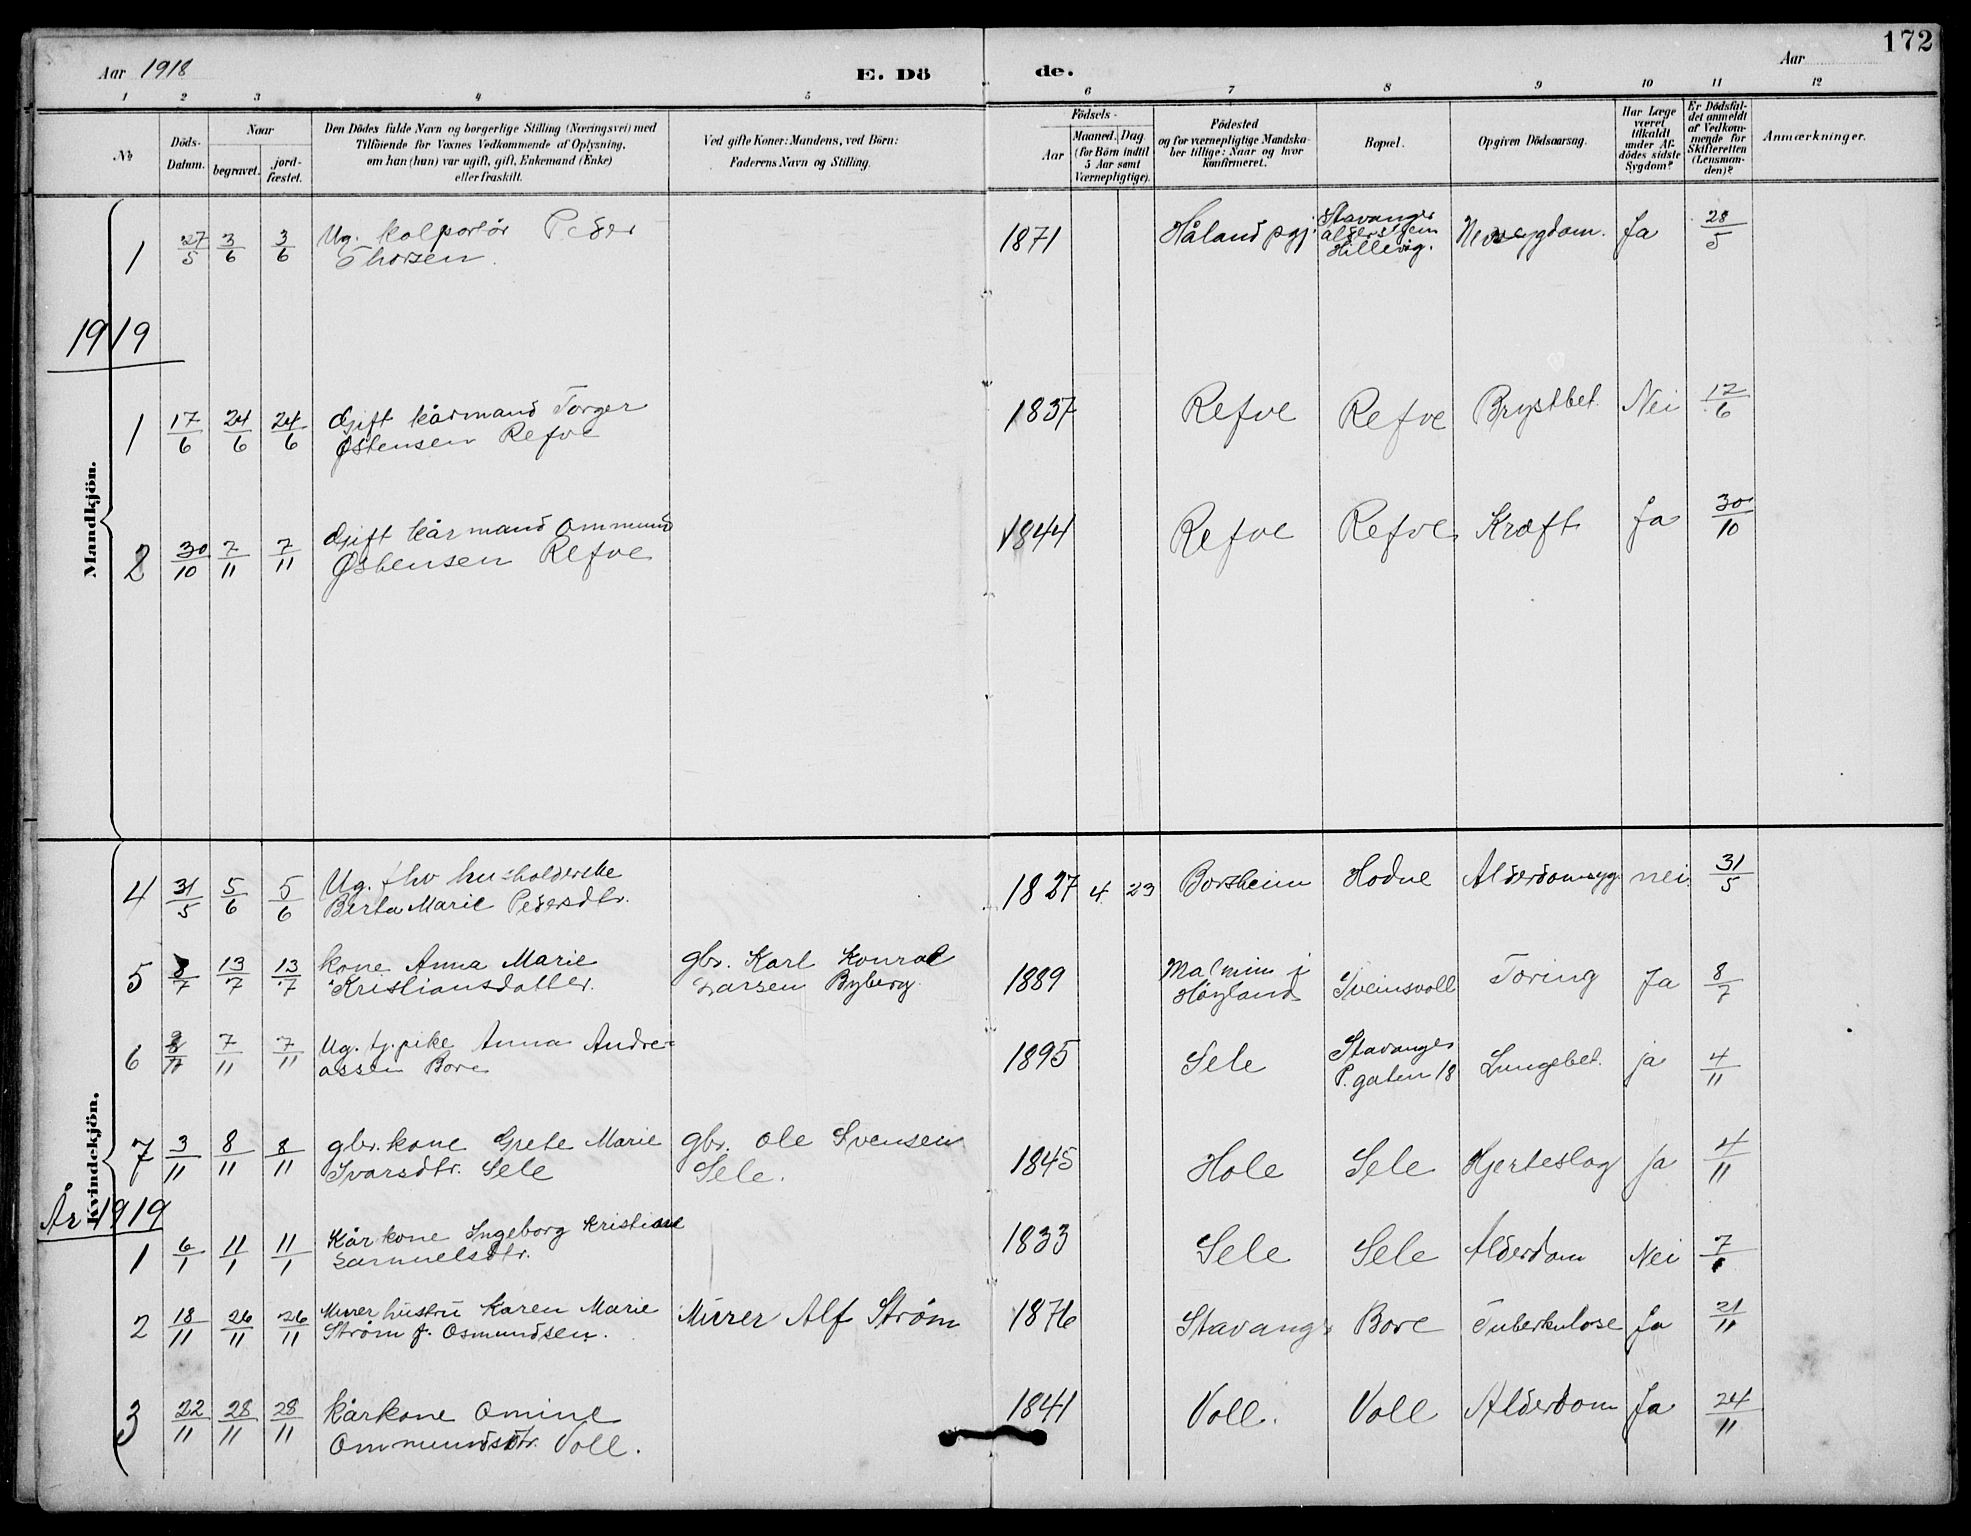 172
Aar 1918 E. Dö de. Aar
1 2 3 4 5 6 7 8 9 10 11 12
No
Döds-Datum.
Naar
begravet.
jord-fæstet.
Den Dödes fulde Navn og borgerlige Stilling (Næringsvei) med
Tilföiende for Voxnes Vedkommende af Oplysning,
om han (hun) var ugift, gift, Enkemand (Enke)
eller fraskilt.
Ved gifte Koner: Mandens, ved Börn:
Faderens Navn og Stilling.
Födsels-
Aar
Maaned. Dag.
(for Börn indtil
5 Aar samt
Værnepligtige).
Födested
og for værnepligtige Mandska-
ber tillige: Naar og hvor
konfirmeret.
Bopæl.
Opgiven Dödsaarsag.
Har Læge
været
tilkaldt
under Af-
dödes sidste
Sygdom?
Er Dödsfal-
det anmeldt
af Vedkom-
mende for
Skifteretten
(Lensman-
den)?
Anmærkninger.
Mandkjön.
1 27/5 3/6 3/6 Ug. kolportör Peder
Thorsen.
1871 Håland pgj. Stavanger
aldershjem
Hillevåg. Ja 28/5
1919
1 17/6 24/6 24/6 Gift kårmand Torger
Østensen Refve
1837 Refve Refve Brystbet. Nei 17/6
2 30/10 7/11 7/11 Gift kårmand Ommund
Østensen Refve
1844 Refve Refve Kræft Ja 30/10
Kvindekjön.
4 31/5 5/6 5/6 Ug. fhv husholderske
Berta Marie Pedersdtr.
1827 4 23 Borsheim Hodne Alderdomsyg. nei 31/5
5 8/7 13/7 13/7 kone Anna Marie
Kristiansdatter.
gbr. Karl Konrad
Larsen Byberg.
1889 Malmim i
Høyland Sveinsvoll Tæring Ja 8/7
6 7/11 7/11 Ug. tj. pike Anna Andre=
assen Bore
1895 Sele Stavanger
P. gaten 18 Lungebet. ja 4/11
7 3/11 8/11 8/11 gbr. kone Grete Marie
Ivarsdtr. Sele
gbr. Ole Svensen
Sele.
1845 Hole Sele Hjerteslag Ja 4/11
År 1919
1 6/1 11/1 11/1 Kårkone Ingeborg Kristiane
Samuelsdtr.
1833 Sele Sele Alderdom Nei 7/1
2 18/11 26/11 26/11 Murer hustru Karen Marie
Strøm f. Osmundsen.
Murer Alf Strøm
1876 Stavanger Bore Tuberkulose Ja 21/11
3 22/11 28/11 28/11 kårkone Omine
Ommundsdtr. Voll.
1841 Voll. Voll Alderdom Ja 24/11